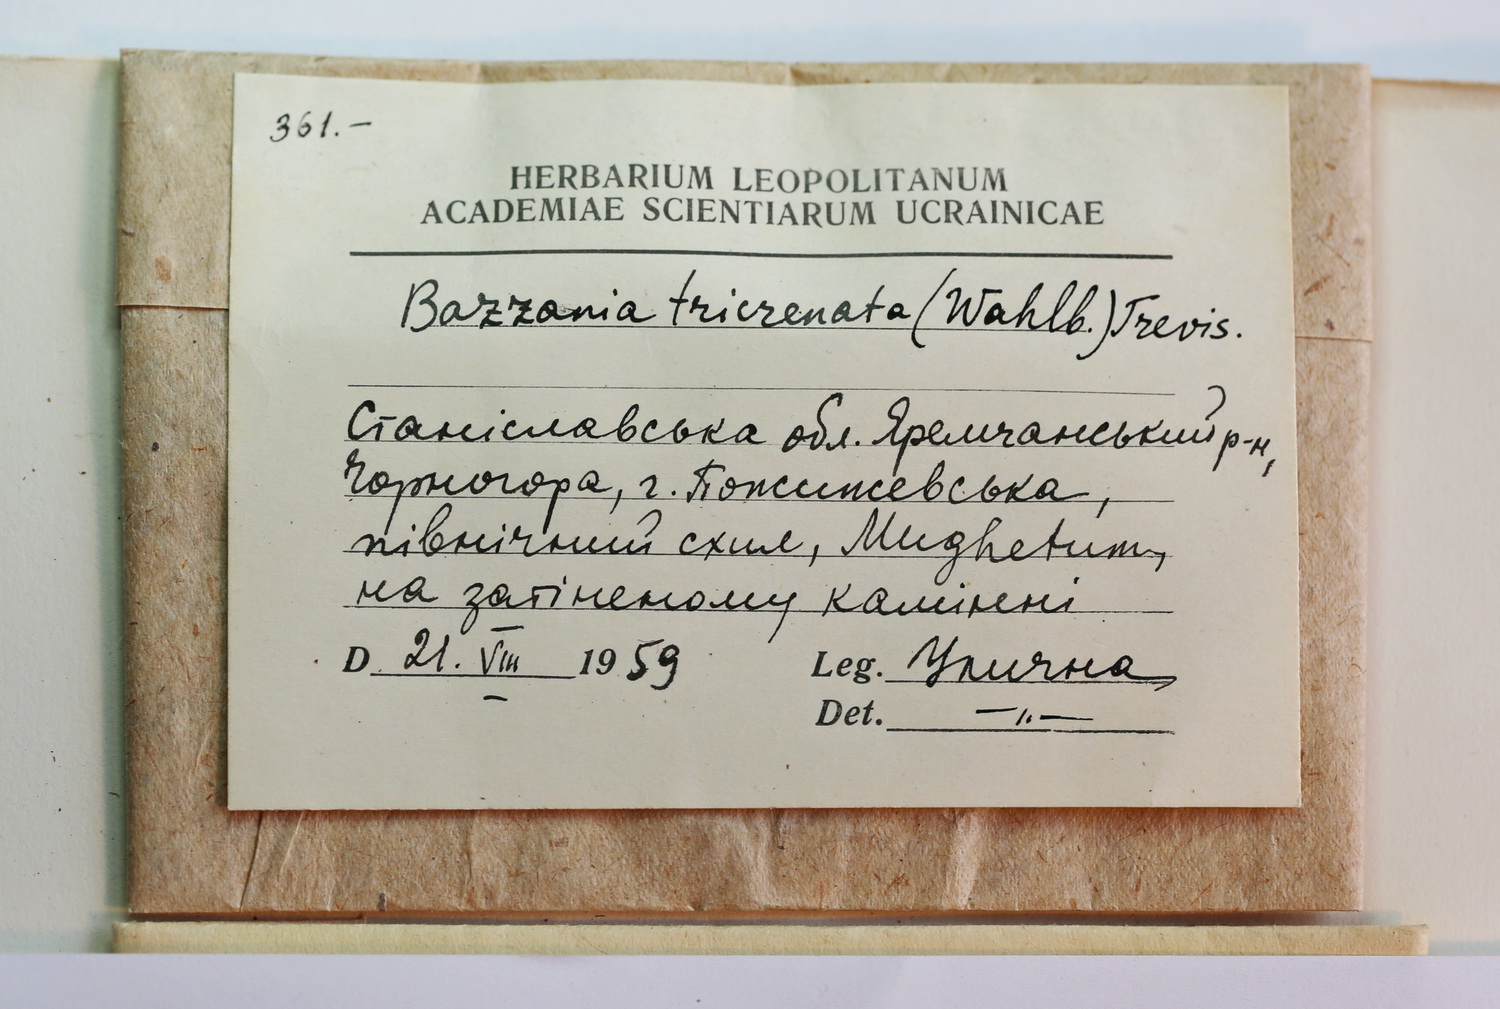 361.–
HERBARIUM LEOPOLITANUM
ACADEMIAE SCIENTIARUM UCRAINICAE
Bazzania tricrenata (Wahlb.) Trevis.
Станіславська обл. Яремчанський р-н,
Чорногора, г. Пожижевська,
північний схил, Mughetum,
на затіненому камінні
D. 21. VIII 1959 Leg. Улична
Det. –„–